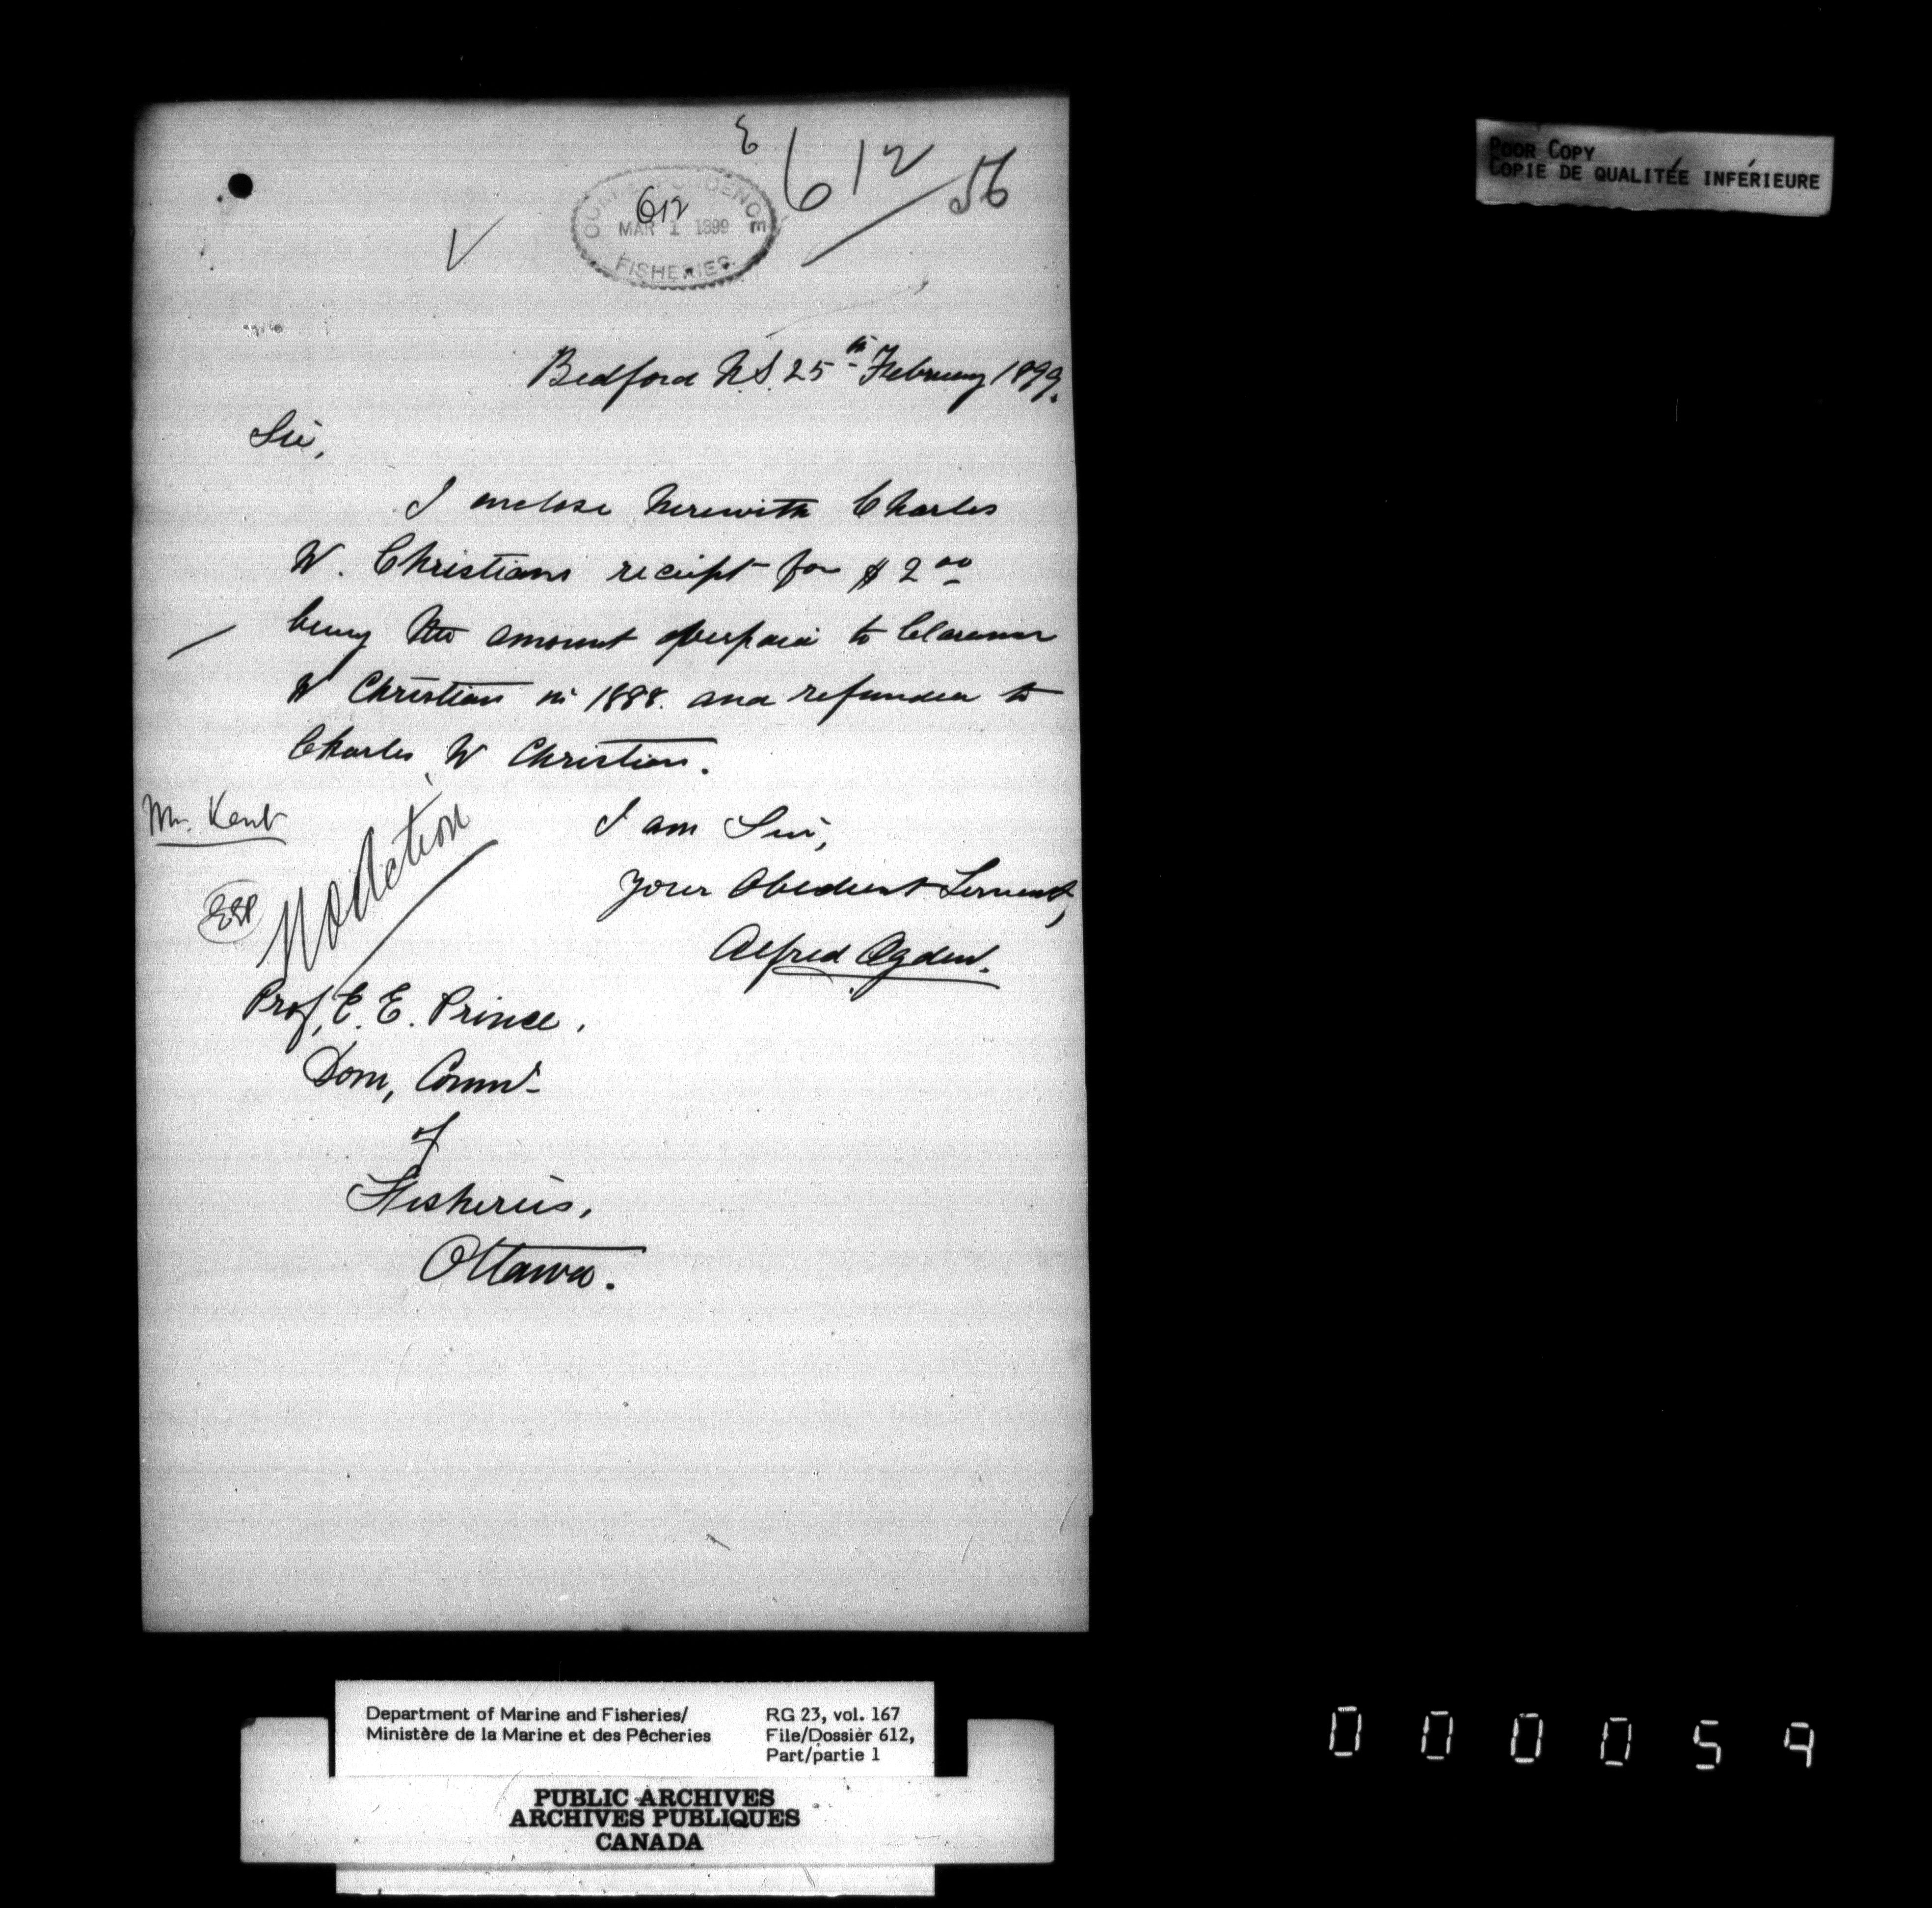 E 612/56
CORRESPONDENCE
612
MAR 1 1899
FISHERIES
POOR COPY
COPIE DE QUALITÉE INFÉRIEURE
Bedford N.S. 25th February 1899.
Sir,
I enclose herewith Charles
W. Christians receipt for $2.00
being the amount overpaid to Clarence
W Christian in 1888. and refunded to
Charles W Christian.
Mr. Kent
No Action
EEP
I am Sir,
Your Obedient Servant,
Alfred Ogden.
Prof. E. E. Prince,
Dom, Comm'r
of
Fisheries,
Ottawa.
Department of Marine and Fisheries/
Ministère de la Marine et des Pêcheries
RG 23, vol. 167
File/Dossier 612,
Part/partie 1
PUBLIC ARCHIVES
ARCHIVES PUBLIQUES
CANADA
000059